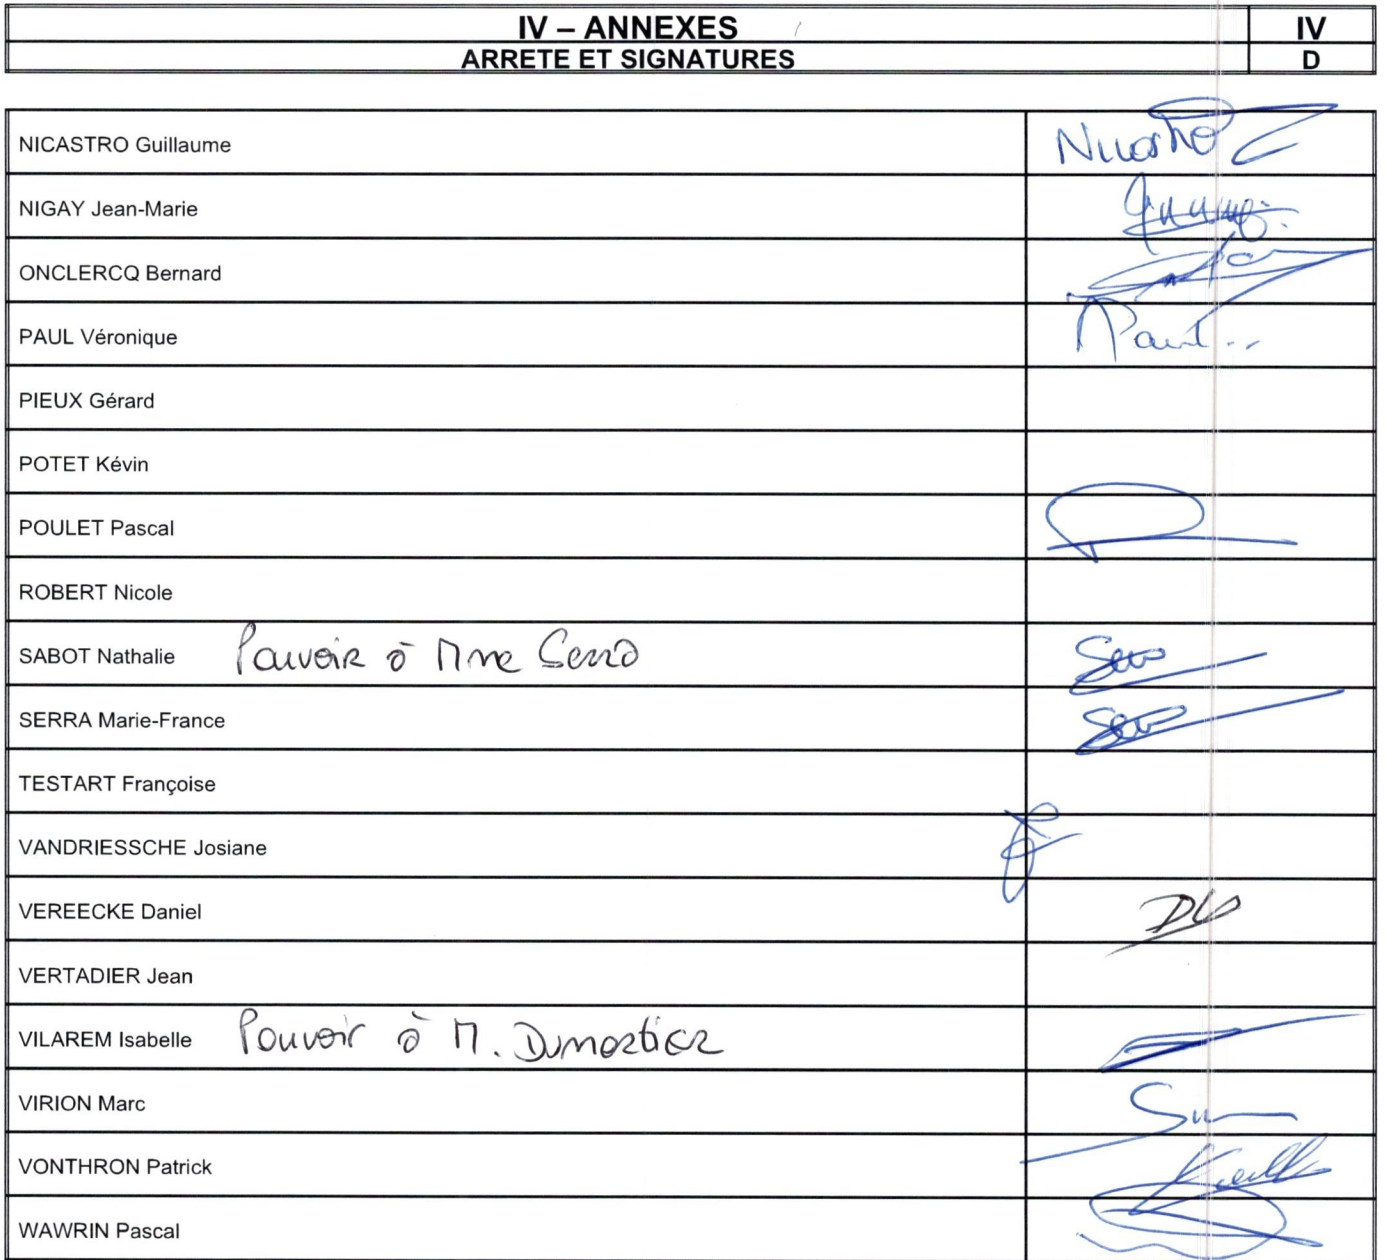 IV – ANNEXES IV
ARRETE ET SIGNATURES D
NICASTRO Guillaume Nicastro
NIGAY Jean-Marie
ONCLERCQ Bernard
PAUL Véronique Paul
PIEUX Gérard
POTET Kévin
POULET Pascal
ROBERT Nicole
SABOT Nathalie Pouvoir à Mme Serra
SERRA Marie-France
TESTART Françoise
VANDRIESSCHE Josiane
VEREECKE Daniel
VERTADIER Jean
VILAREM Isabelle Pouvoir à M. Dumortier
VIRION Marc
VONTHRON Patrick
WAWRIN Pascal